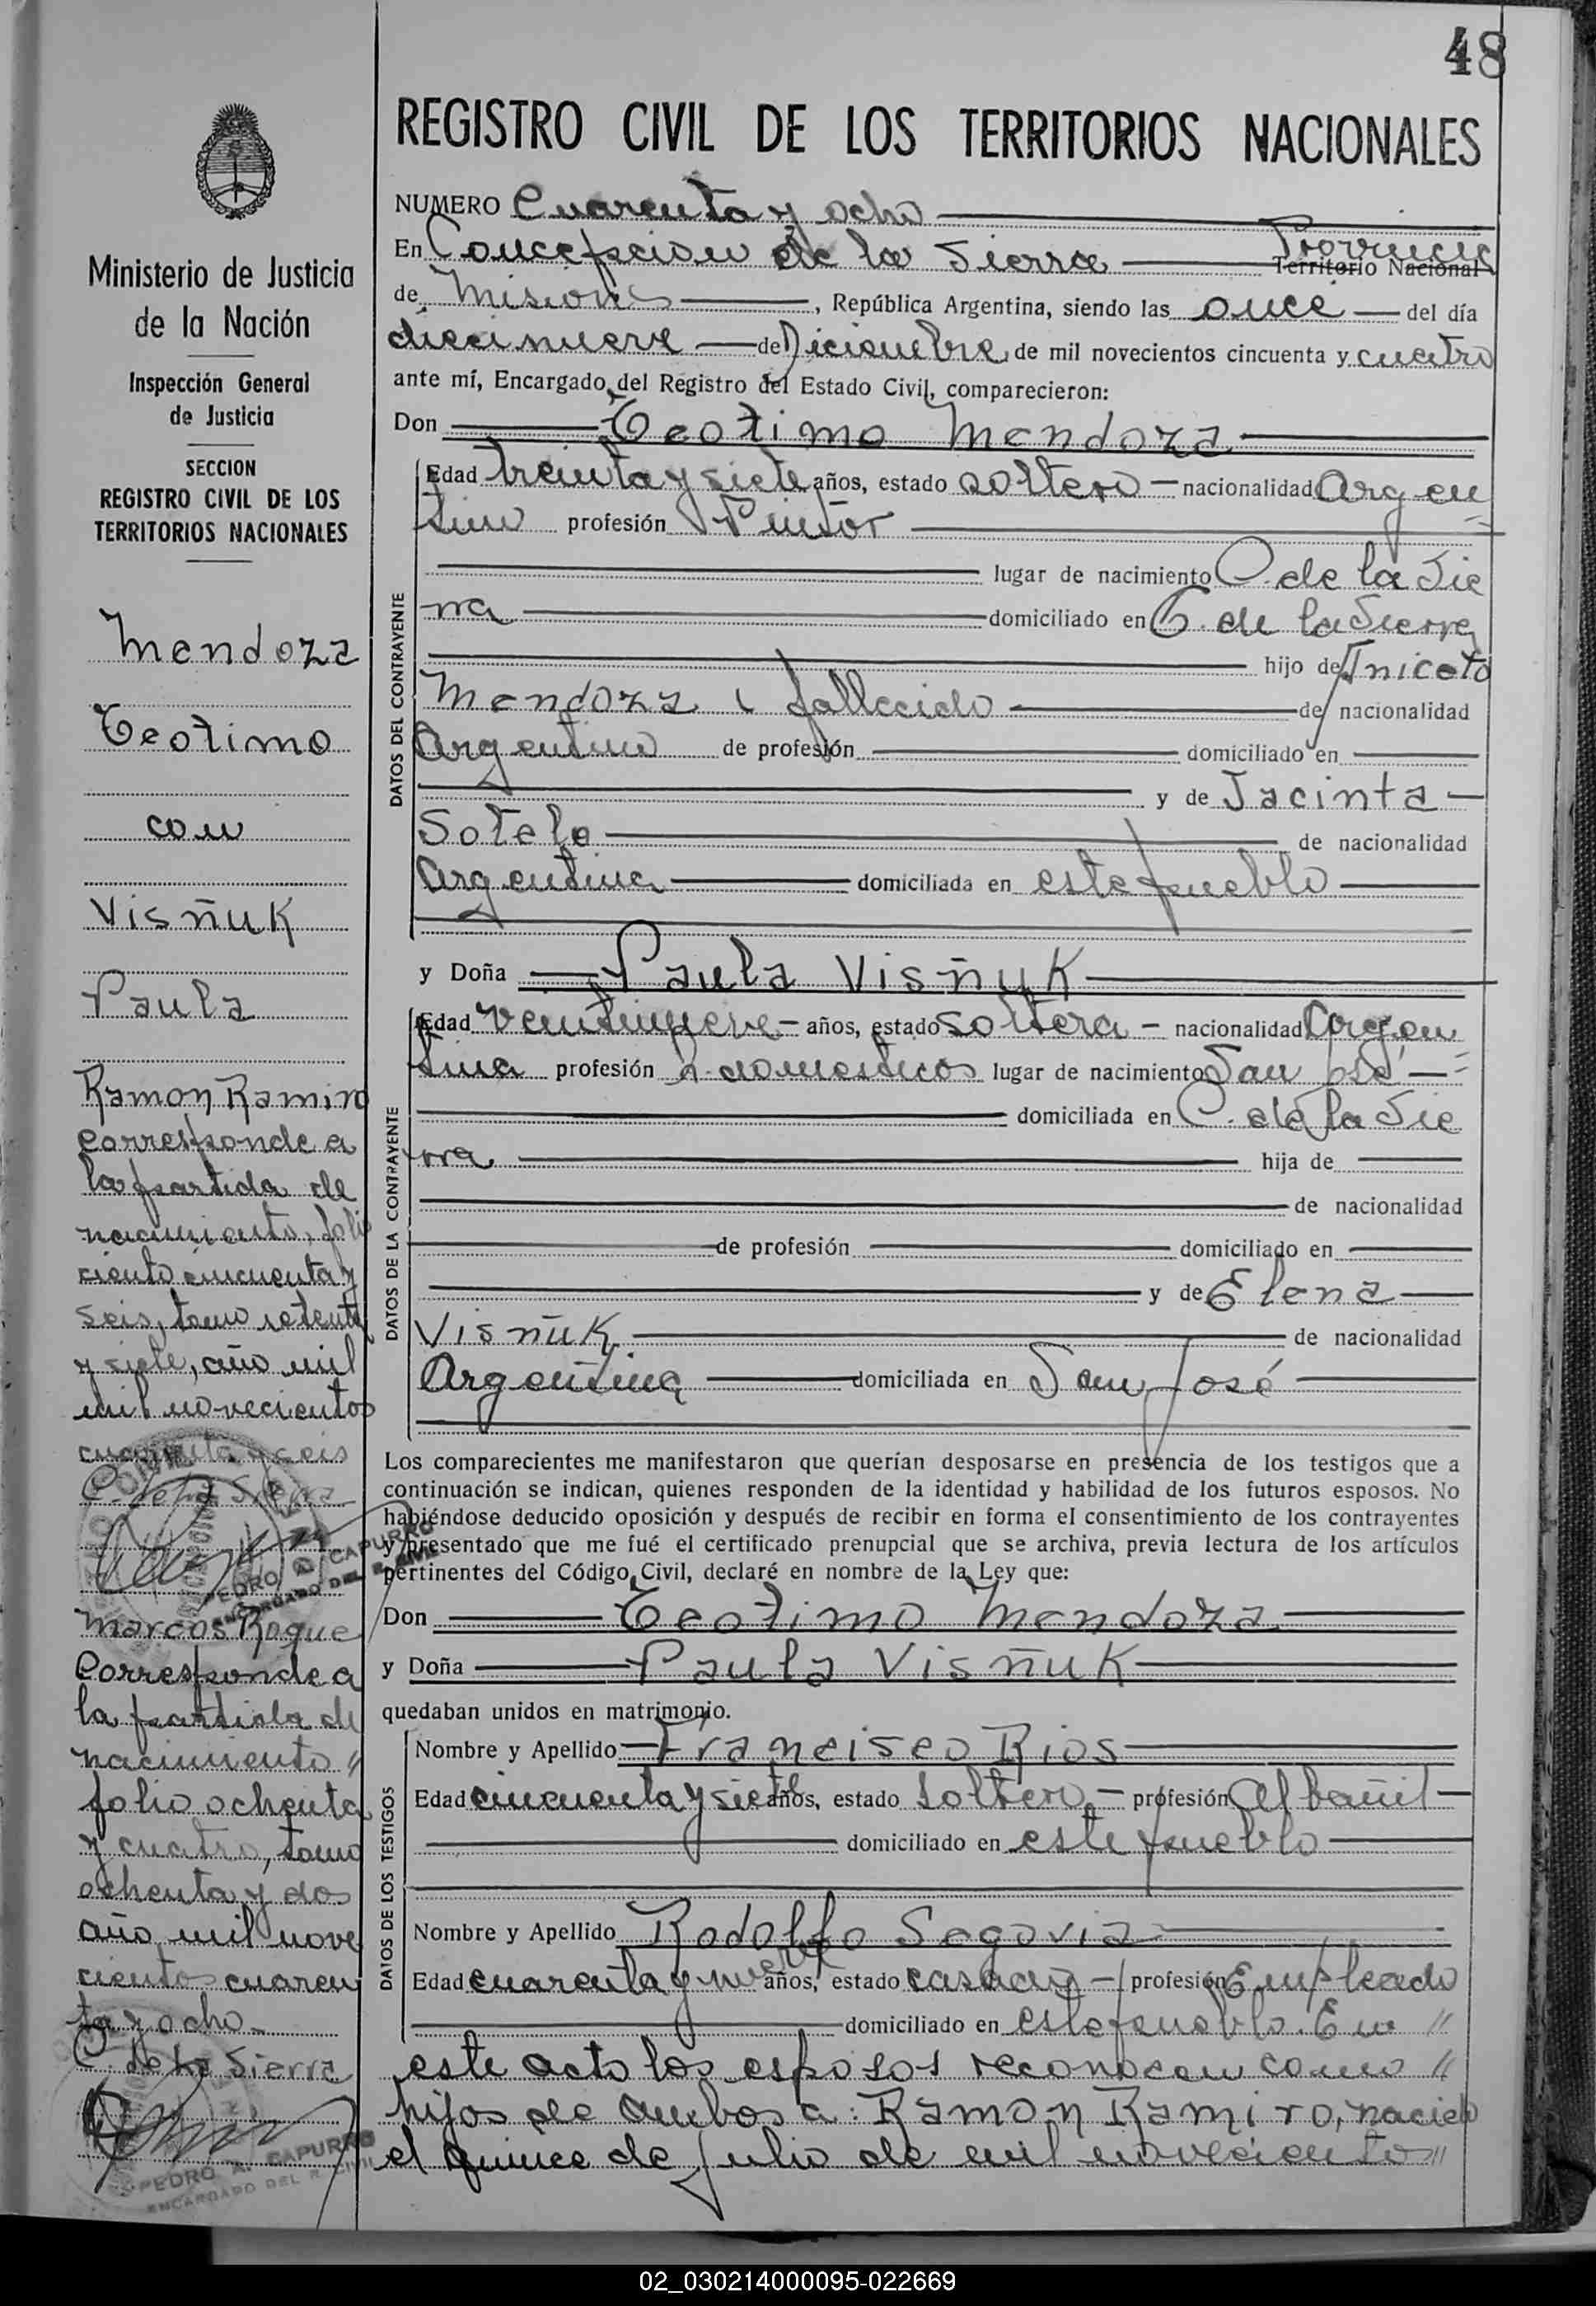 48
REGISTRO CIVIL DE LOS TERRITORIOS NACIONALES
NUMERO Cuarenta y ocho
En Concepcion de la Sierra Provincia Territorio Nacional
de Misiones, República Argentina, siendo las once del día
diecinueve de Diciembre de mil novecientos cincuenta y cuatro
ante mí, Encargado del Registro del Estado Civil, comparecieron:
Don Teotimo Mendoza
DATOS DEL CONTRAYENTE
Edad treinta y siete años, estado soltero nacionalidad Argen
tino profesión Pintor
lugar de nacimiento C. de la Sie
rra domiciliado en C. de la Sierra
hijo de Aniceto
Mendoza fallecido de nacionalidad
Argentino de profesión domiciliado en
y de Jacinta
Sotelo de nacionalidad
Argentina domiciliada en este pueblo
y Doña Paula Visñuk
DATOS DE LA CONTRAYENTE
Edad veintinueve años, estado soltera nacionalidad Argen
tina profesión q. domesticos lugar de nacimiento San José
domiciliada en C. de la Sie
rra hija de
de nacionalidad
de profesión domiciliado en
y de Elena
Visñuk de nacionalidad
Argentina domiciliada en San José
Los comparecientes me manifestaron que querían desposarse en presencia de los testigos que a
continuación se indican, quienes responden de la identidad y habilidad de los futuros esposos. No
habiéndose deducido oposición y después de recibir en forma el consentimiento de los contrayentes
y presentado que me fué el certificado prenupcial que se archiva, previa lectura de los artículos
pertinentes del Código Civil, declaré en nombre de la Ley que:
Don Teotimo Mendoza
y Doña Paula Visñuk
quedaban unidos en matrimonio.
DATOS DE LOS TESTIGOS
Nombre y Apellido Francisco Rios
Edad cincuenta y siete años, estado soltero profesión Albañil
domiciliado en este pueblo
Nombre y Apellido Rodolfo Segovia
Edad cuarenta y nueve años, estado casado profesión Empleado
domiciliado en este pueblo. En "
este acto los esposos reconocen como "
hijos de ambos a: Ramon Ramiro, nacido
el quince de julio de mil novecientos "
Ministerio de Justicia
de la Nación
Inspección General
de Justicia
SECCION
REGISTRO CIVIL DE LOS
TERRITORIOS NACIONALES
Mendoza
Teotimo
con
Visñuk
Paula
Ramon Ramiro
Corresponde a
la partida de
nacimiento, folio
ciento cincuenta y
seis, tomo setenta
y siete, año mil
mil novecientos
cuarenta y seis
C. de la Sierra
PEDRO A. CAPURRO
ENCARGADO DEL R. CIVIL
Marcos Roque
Corresponde a
la partida de
nacimiento "
folio ochenta
y cuatro, tomo
ochenta y dos
año mil nove
cientos cuaren
ta y ocho
C. de la Sierra
PEDRO A. CAPURRO
ENCARGADO DEL R. CIVIL
02_030214000095-022669